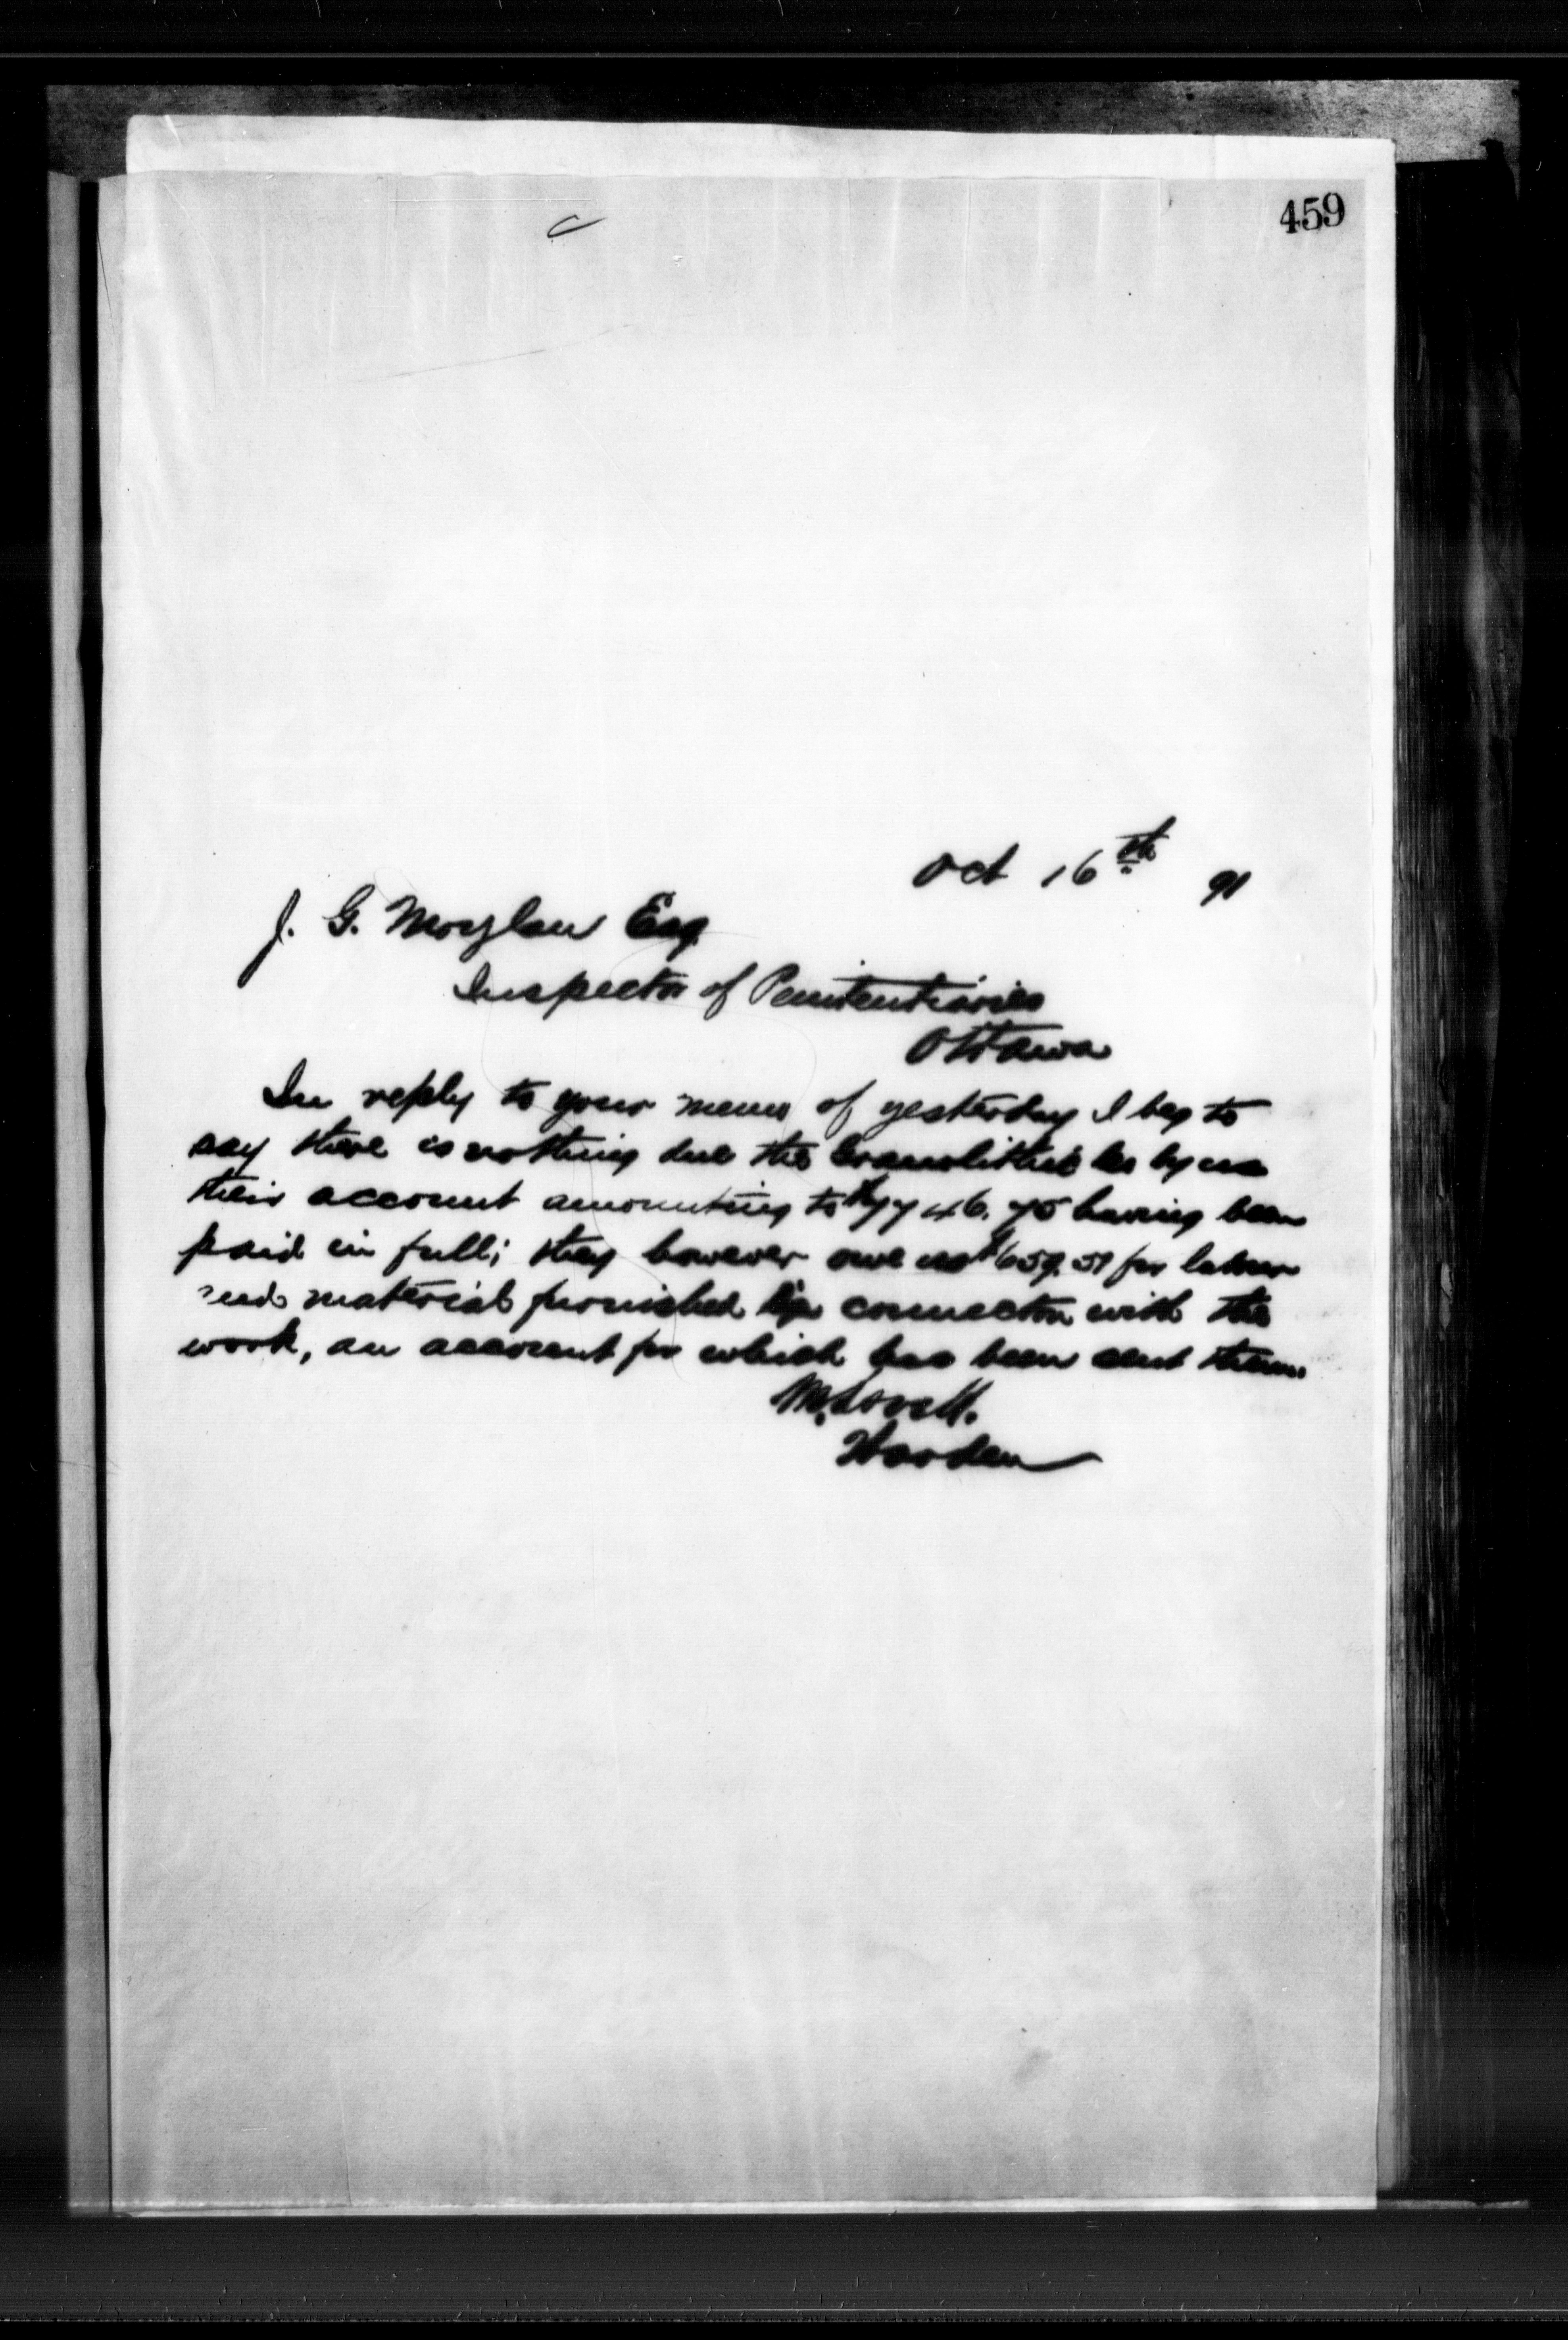 459
Oct 16th 91
J. G. Moylan Esq
Inspector of Penitentiaries
Ottawa
In reply to your memo of yesterday I beg to
say there is nothing due the Granolithic Co by us
their account amounting to $ 46.75 having been
paid in full; they however owe us $659.51 for labour
and material furnished in connection with the
work, an account for which has been sent them.
M. Lavell.
Warden